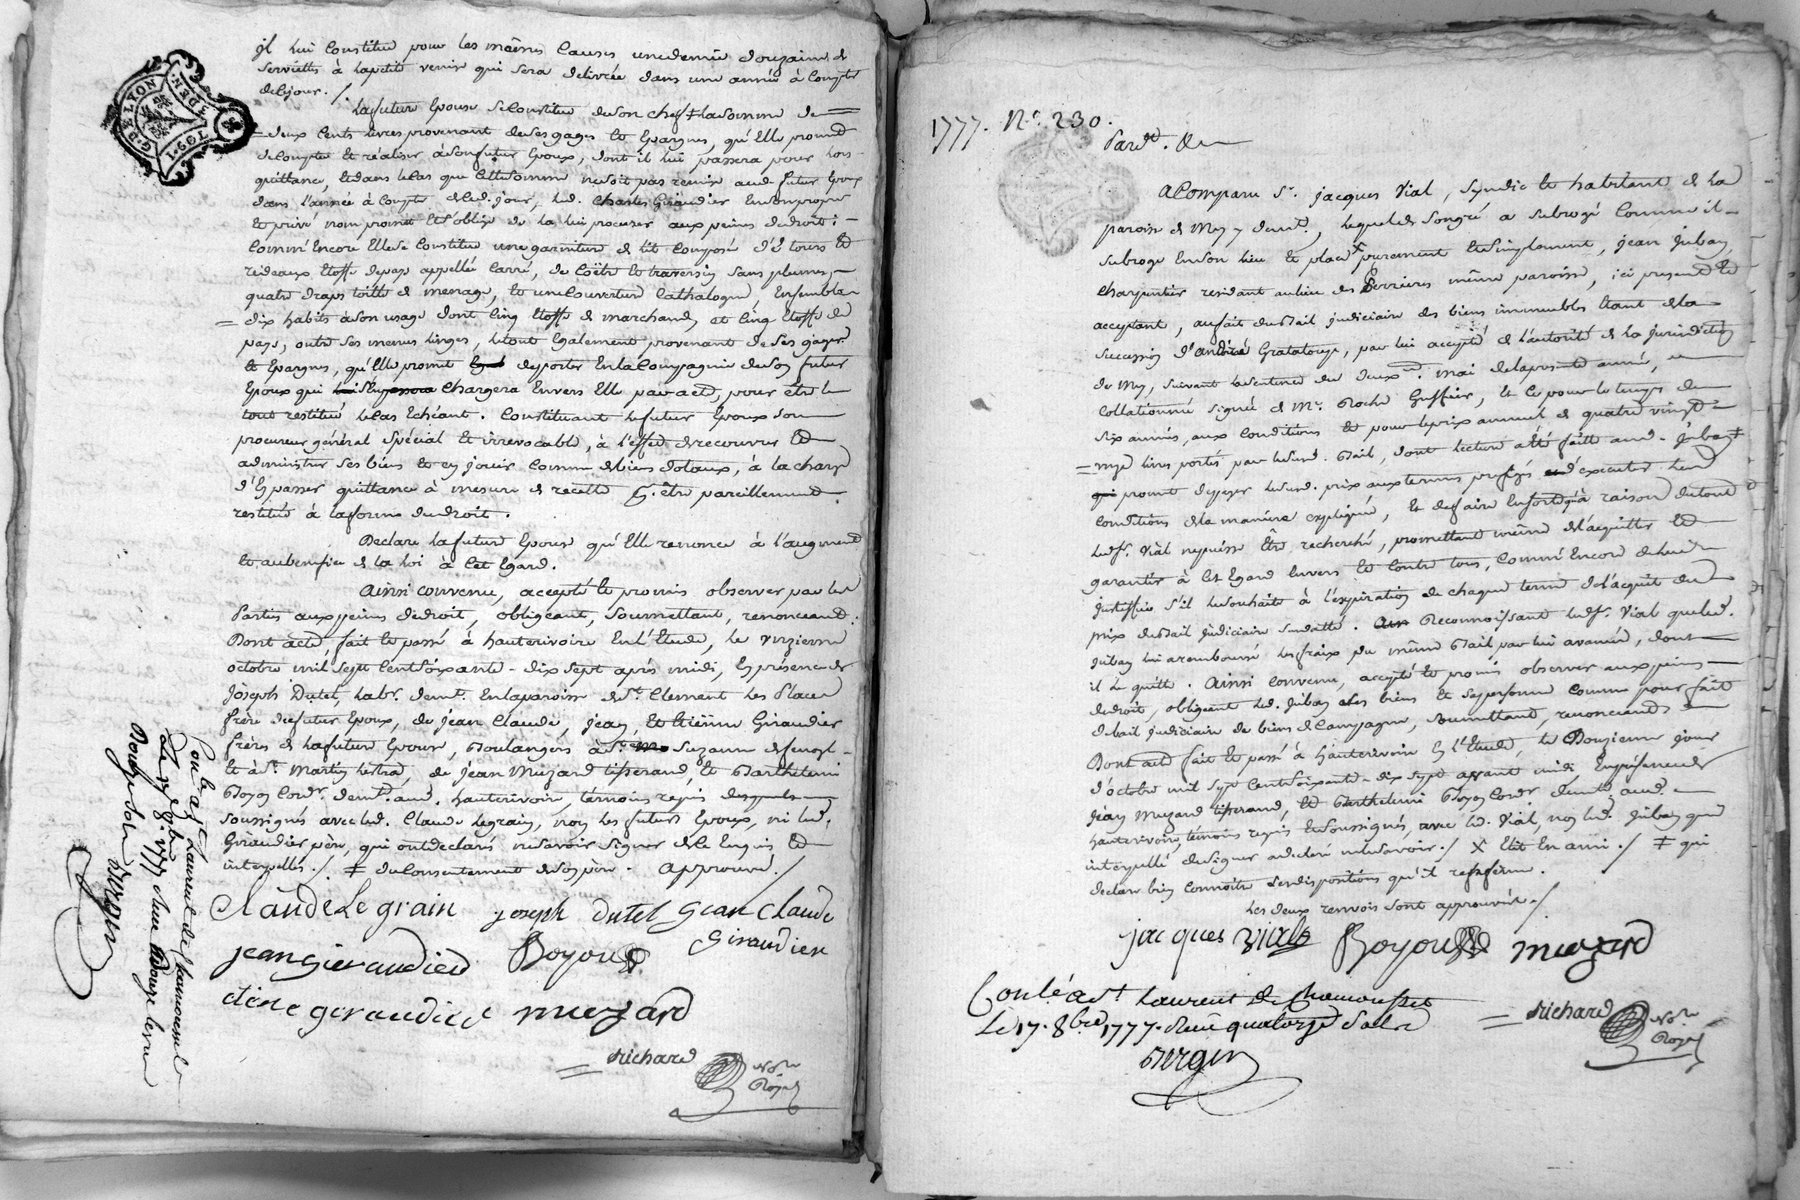 G. DE LYON
3 DEN.
1 S. 9 TO
il lui constitue pour les mêmes causes une demie douzaine de
serviettes à la petite venise qui sera délivrée dans une année à compter
de ce jour ./.
La future Epouse se constitue de son chef ‡ la somme de
= deux cents livres provenant de ses gages et Epargnes, qu'Elle promet
de compter et réaliser à son futur Epoux, dont il lui passera pour lors
quittance, et dans le cas que cette somme ne soit pas remise aud. futur Epoux
dans l'année à compter de ced. jour, led. Charles Giraudier en son propre
et privé nom promet et s'oblige de la lui procurer aux peines de droit ;
comme Encore Elle se constitue une garniture de lit composée d'é tours et
rideaux Etoffe de pays appellée Carré, de Coëtre et traversin sans plumes,
quatre draps toille de menage, et une couverture Cathalogne, Ensemble
= dix habits à son usage dont cinq Etoffe de marchand, et cinq Etoffe de
pays, outre ses menus linges, le tout Egalement provenant de ses gages
et Epargnes, qu'Elle promet de porter En la Compagnie de son futur
Epoux qui s'en chargera Envers Elle par acte, pour être le
tout restitué le cas Echéant. Constituant le futur Epoux son
procureur général spécial et irrevocable, à l'effet de recouvrer et
administrer ses biens et en jouir comme de biens dotaux, à la charge
d'En passer quittance à mesure de recette Et être pareillement
restitué à la forme du droit.
Declare la future Epouse qu'Elle renonce à l'augment
et au benefice de la loi à cet Egard.
Ainsi convenu, accepté et promis observer par les
Parties aux peines de droit, obligeant, soumettant, renonceant.
Dont acte, fait et passé à hauterivoire En l'Etude, le onzieme
octobre mil sept cent soixante-dix sept après midi, En présence de
Joseph Dutel, labr. demt. En la paroisse de St. Clement les Places
frère du futur Epoux, de Jean Claude, Jean, et Etiênne Giraudier
frères de la future Epouse, Boulangers à Ste. Suzanne
et à St. Martin Lestra, de Jean Muzard tisserand, et Barthelemi
Boyou Cordr. demts. aud. hauterivoire, témoins requis
soussignés avec led. Claude Legrain, non les futurs Epoux, ni led.
Giraudier père, qui ont declaré ne savoir signer de ce Enquis et
interpellés ./. ‡ du consentement de son père. Approuvé ./
Claude Le grain joseph dutel Jean Claude
Giraudier
jean gieraudier Boyou
etiene geraudier muzard
= Richard Nore
Royal
Contlé a St Laurent de Chamousset
Le 17 8bre 1777
Bergier
1777. No. 230.
Pardt. &c
A Comparu Sr. Jacques Vial, Syndic et habitant de la
paroisse de Mey y demt., lequel de son gré a subrogé comme il
subroge En son lieu et place X purement et simplement, Jean Jubay
charpentier residant au lieu des Verrieres même paroisse, ici present et
acceptant, au fait du Bail judiciaire des biens immeubles Etant de la
succession d'André Grataloup, par lui accepté de l'autorité de la jurisdiction
de Mey, suivant la sentence du deux mai de la presente année,
collationnée signée de Me. Roche Greffier, et ce pour le temps de
Six années, aux conditions et pour le prix annuel de quatre vingt
= onze livres portés par led. Bail, dont lecture a été faite aud. Jubay ‡
promet de payer led. prix aux termes prefixés d'executer les
conditions de la manière expliquée, et de faire En sorte qu'à raison du tout
led. Sr. Vial ne puisse Etre recherché, promettant même de l'acquitter et
garantir à cet Egard Envers et contre tous, comme Encore de lui
justiffier s'il le souhaite à l'expiration de chaque terme de l'acquit du
prix du Bail judiciaire susdatté. Reconnoissant led. Sr. Vial que led.
Jubay lui a remboursé les fraix du même Bail par lui avancés, dont
il le quitte. Ainsi convenu, accepté et promis observer aux peines
de droit, obligeant led. Jubay ses biens et sa personne comme pour fait
de bail judiciaire de biens de Campagne, soumettant, renonceant
Dont acte fait et passé à hauterivoire En l'Etude, le Douzieme jour
d'octobre mil sept cent soixante-dix sept avant midi, En présence de
Jean Muzard tisserand, et Barthelemi Boyou Cordr. demts. aud.
hauterivoire, témoins requis et soussignés, avec led. Vial, non led. Jubay qui
interpellé de signer a declaré ne le savoir ./. X Et En ami ./. ‡ qui
declare bien connoitre les dispositions qu'il renferme.
Les deux renvois sont approuvés ./.
jacques vial Boyou muzard
= Richard Nore
Royal
Contlé a St Laurent de Chamousset
Le 17. 8bre 1777. Reçu quatorze sols
Bergier